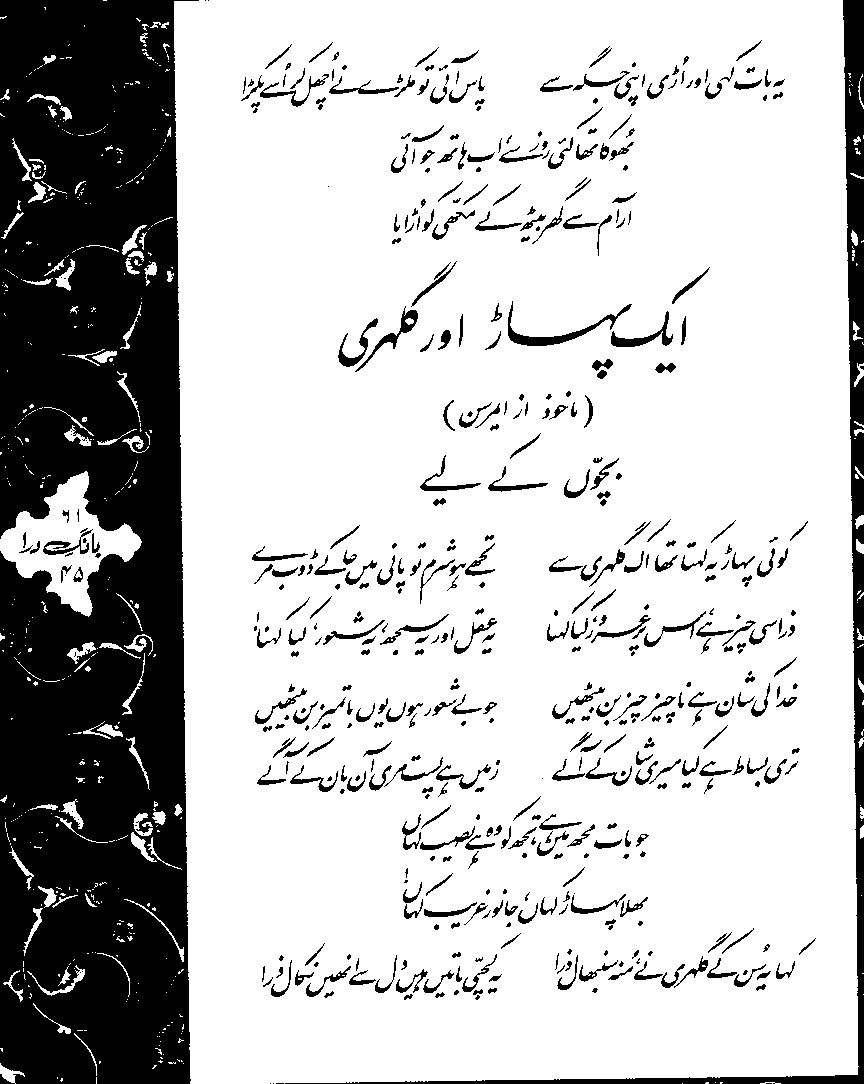 یہ بات کہی اور اُڑی اپنی جگہ سے پاس آئی تو مکڑے نے اُچھل کر اُسے پکڑا
بھُوکا تھا کئی روز سے، اب ہاتھ جو آئی
آرام سے گھر بیٹھ کے مکھّی کو اُڑایا
ایک پہاڑ اور گلہری
(ماخوذ از ایمرسن)
بچّوں کے لیے
کوئی پہاڑ یہ کہتا تھا اک گلہری سے تجھے ہو شرم تو پانی میں جا کے ڈوب مرے
ذرا سی چیز ہے، اس پر غرور، کیا کہنا یہ عقل اور یہ سمجھ، یہ شعور، کیا کہنا!
خدا کی شان ہے ناچیز چیز بن بیٹھیں جو بے شعور ہوں یوں باتمیز بن بیٹھیں
تری بساط ہے کیا میری شان کے آگے زمیں ہے پست مری آن بان کے آگے
جو بات مجھ میں ہے، تجھ کو وہ ہے نصیب کہاں
بھلا پہاڑ کہاں، جانور غریب کہاں!
کہا یہ سُن کے گلہری نے، مُنہ سنبھال ذرا یہ کچّی باتیں ہیں دل سے انھیں نکال ذرا
۶۱
بانگِ درا
۴۵